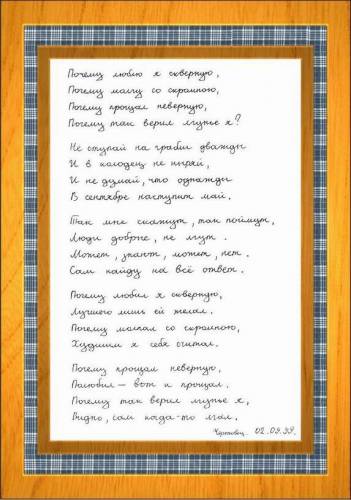 Почему люблю я скверную,
Почему молчу со скромною,
Почему прощал неверную,
Почему так верил лгунье я?
Не ступай на грабли дважды
И в колодец не ныряй,
И не думай, что однажды
В сентябре наступит май.
Так мне скажут, так поймут,
Люди добрые, не лгут.
Может, знают, может, нет.
Сам найду на всё ответ.
Почему любил я скверную,
Лучшего лишь ей желал.
Почему молчал со скромною,
Худшим я себя считал.
Почему прощал неверную,
Полюбил – вот и прощал.
Почему так верил лгунье я,
Видно, сам когда-то лгал.
02.09.99.